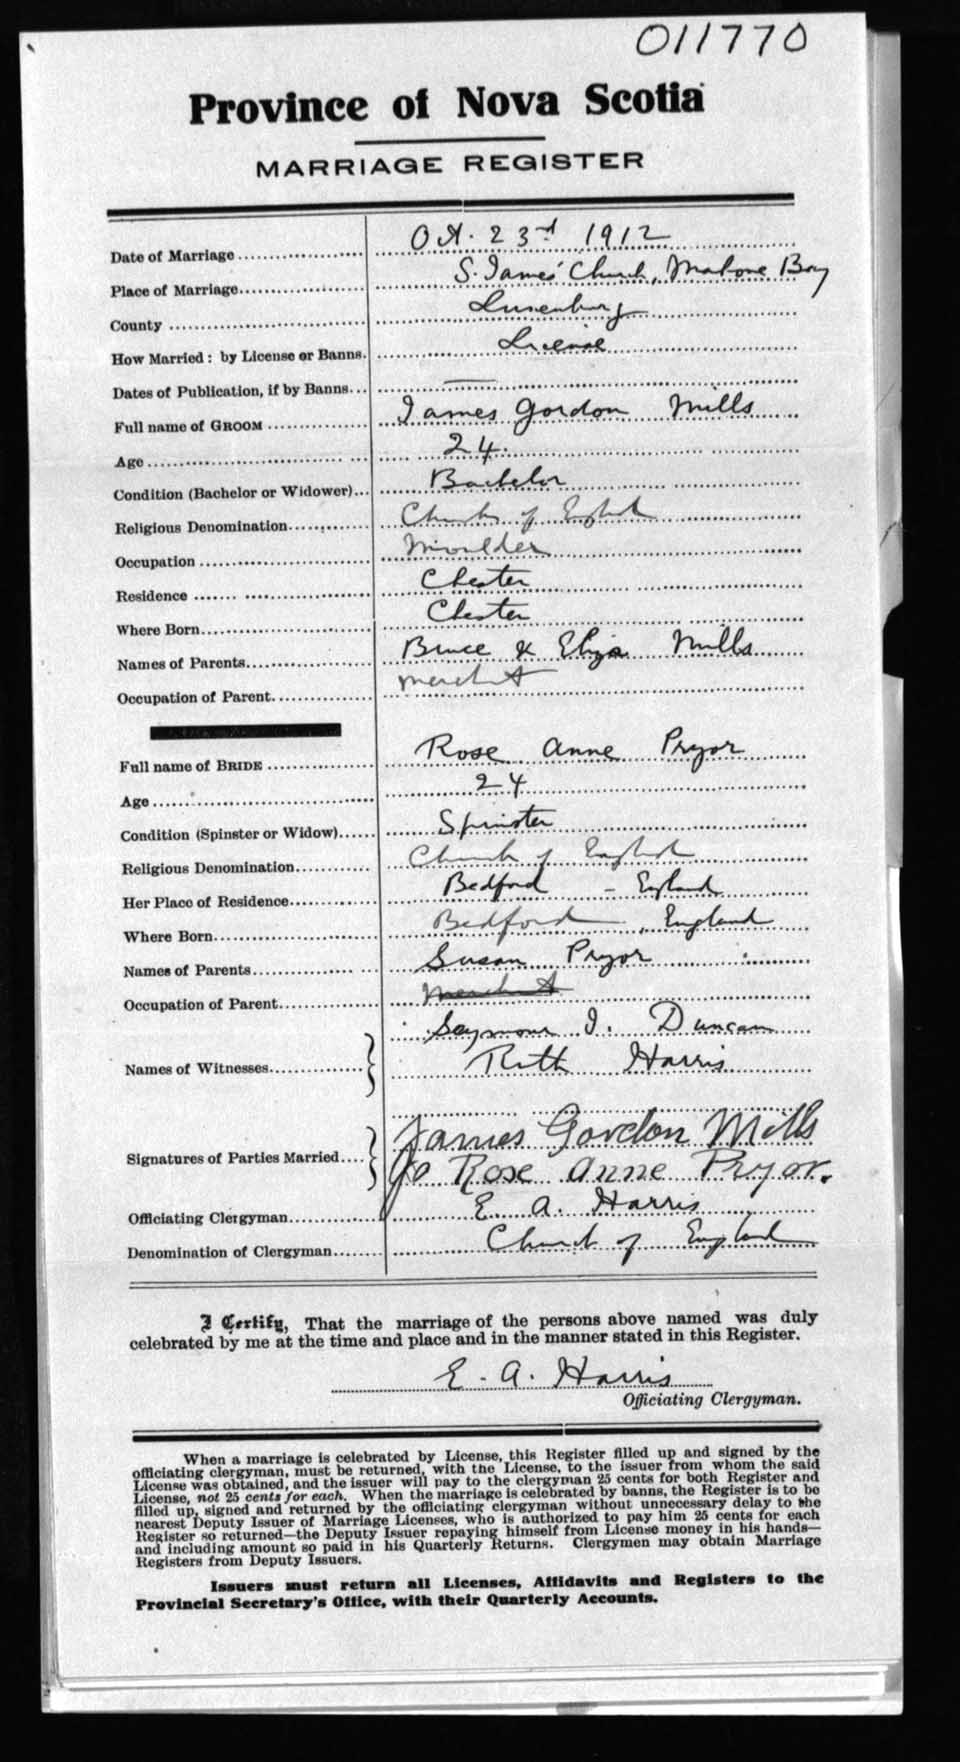 011770
Province of Nova Scotia
MARRIAGE REGISTER
Date of Marriage Oct. 23rd 1912
Place of Marriage S. James' Church, Mahone Bay
County Lunenburg
How Married: by License or Banns. License
Dates of Publication, if by Banns —
Full name of GROOM James Gordon Mills
Age 24.
Condition (Bachelor or Widower) Bachelor
Religious Denomination Church of England
Occupation Moulder
Residence Chester
Where Born Chester
Names of Parents Bruce & Eliza Mills
Occupation of Parent Merchant
Full name of BRIDE Rose Anne Pryor
Age 24
Condition (Spinster or Widow) Spinster
Religious Denomination Church of England
Her Place of Residence Bedford - England
Where Born Bedford, England
Names of Parents Susan Pryor
Occupation of Parent Merchant
Seymour I. Duncan
Names of Witnesses Ruth Harris
James Gordon Mills
Signatures of Parties Married Rose Anne Pryor.
Officiating Clergyman E. A. Harris
Denomination of Clergyman Church of England
I Certify, That the marriage of the persons above named was duly
celebrated by me at the time and place and in the manner stated in this Register.
E. A. Harris
Officiating Clergyman.
When a marriage is celebrated by License, this Register filled up and signed by the
officiating clergyman, must be returned, with the License, to the issuer from whom the said
License was obtained, and the issuer will pay to the clergyman 25 cents for both Register and
License, not 25 cents for each. When the marriage is celebrated by banns, the Register is to be
filled up, signed and returned by the officiating clergyman without unnecessary delay to the
nearest Deputy Issuer of Marriage Licenses, who is authorized to pay him 25 cents for each
Register so returned—the Deputy Issuer repaying himself from License money in his hands—
and including amount so paid in his Quarterly Returns. Clergymen may obtain Marriage
Registers from Deputy Issuers.
Issuers must return all Licenses, Affidavits and Registers to the
Provincial Secretary's Office, with their Quarterly Accounts.